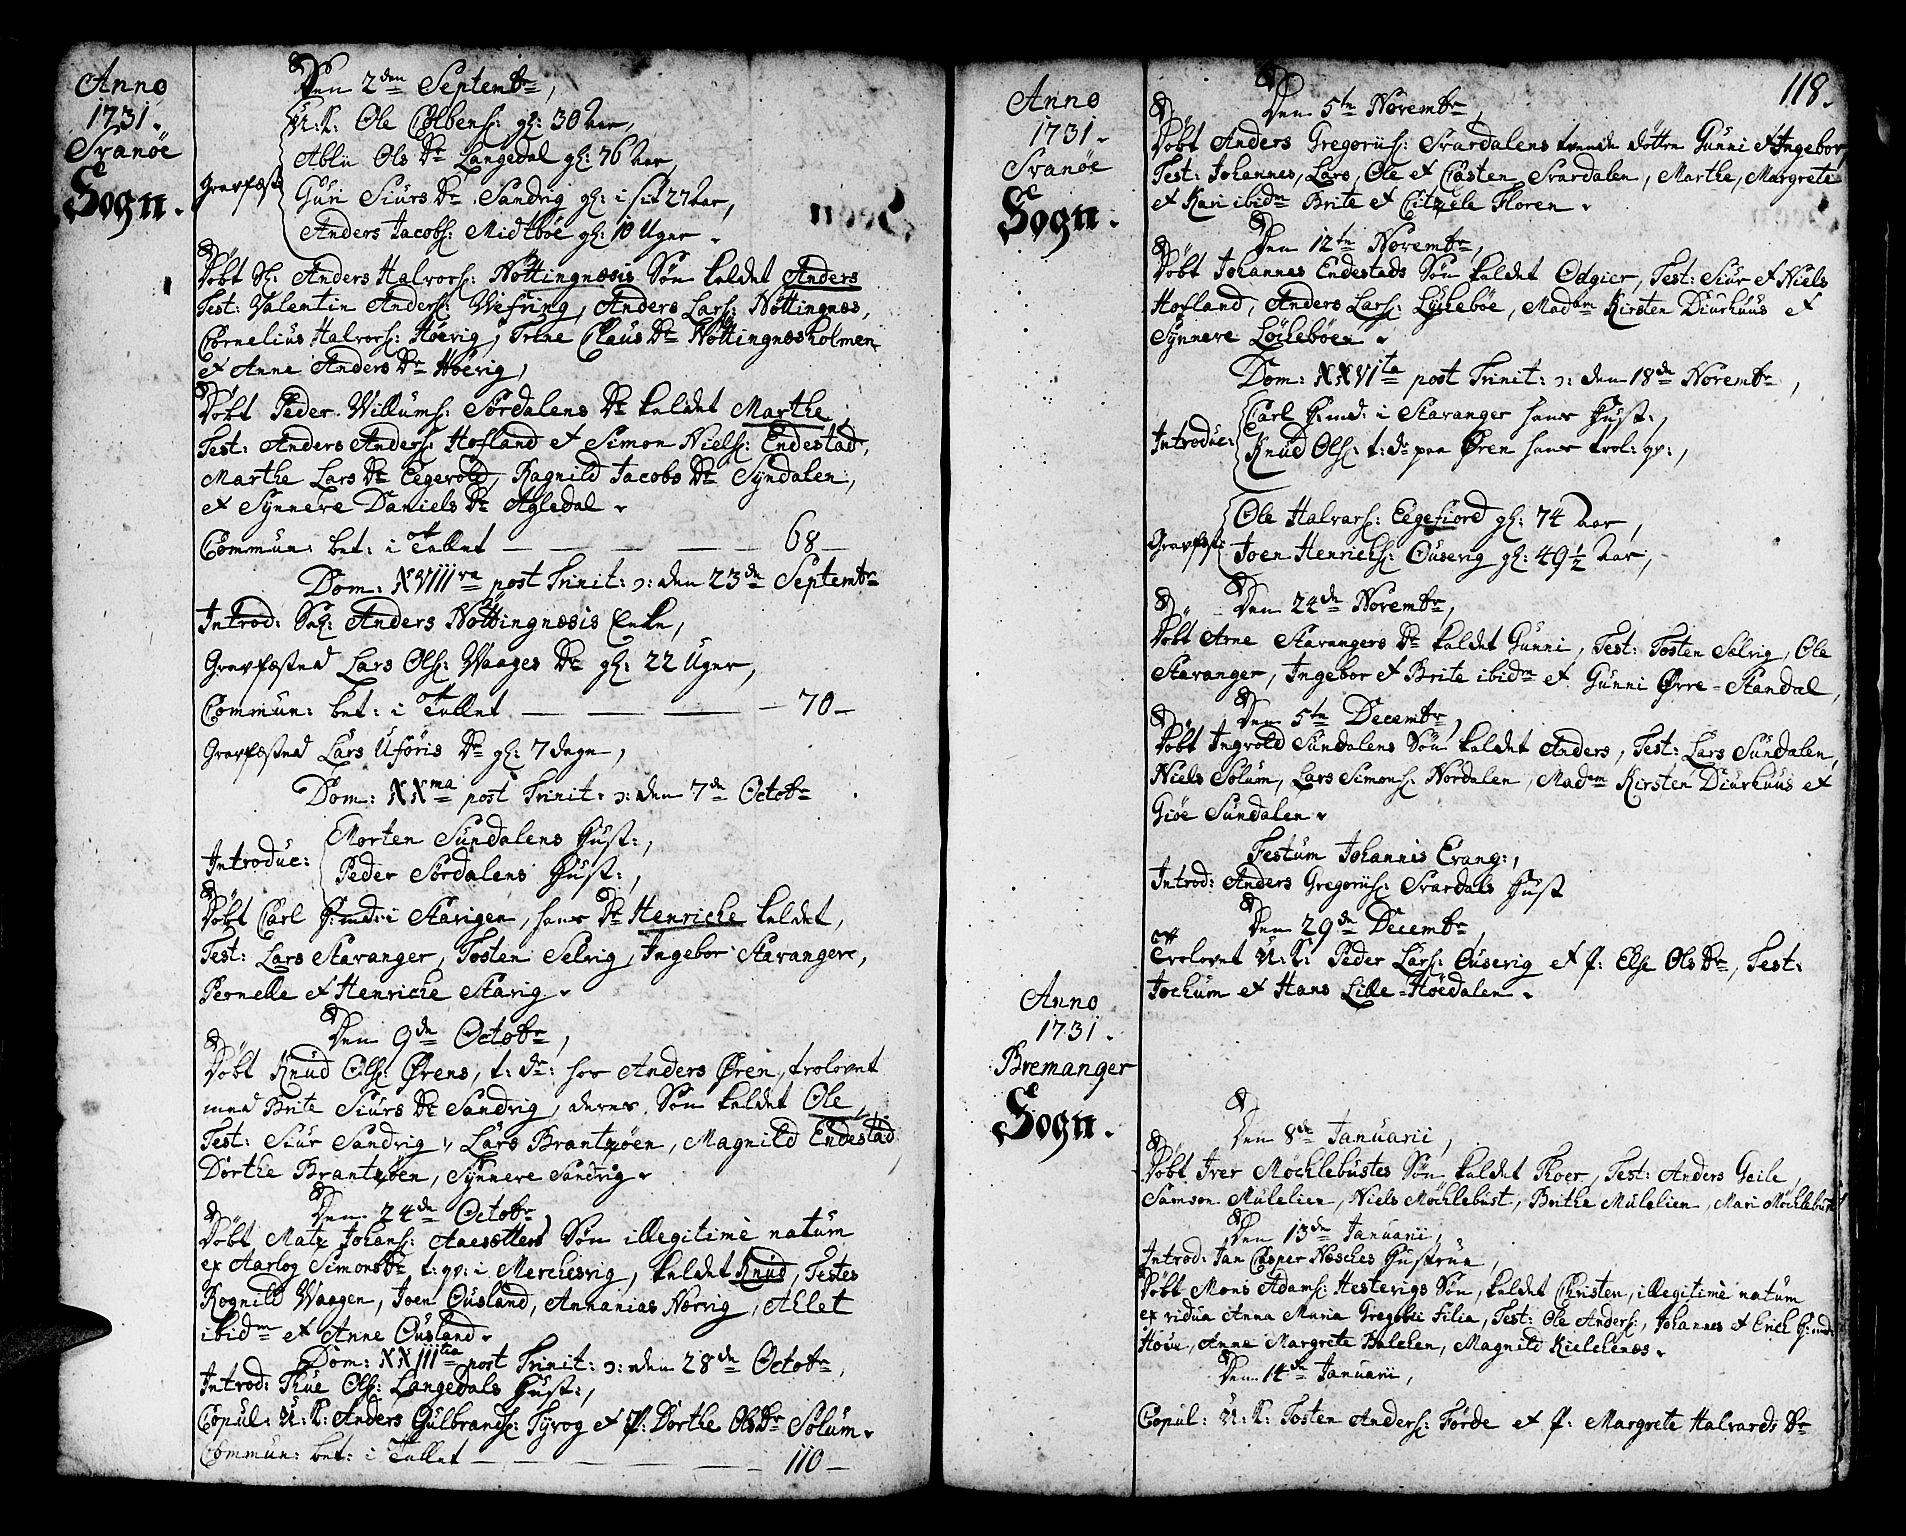 Anno
1731.
Svanöe
Sogn.
Den 2den Septembr,
U: K: Ole Colbens: gl: 30 Aar,
Ablu Ols Dr Langedal gl: 76 Aar,
Gravfæst
Guri Siurs Dr Sandvig gl: i sit 27 Aar,
Anders Jacobs: Midtböe gl: 10 Uger.
Döbt Sl: Anders Halvors: Nöttingnæsis Sön kaldet Anders
Test: Valentin Anders: Wefring, Anders Lars: Nöttingnæs,
Cornelius Halvors: Höevig, Trine Claus Dr Nöttingnæsholmen
et Anne Anders Dr Höevig,
Döbt Peder Willums: Sördalens Dr kaldet Marthe,
Test: Anders Anders: Hofland et Simon Niels: Endestad,
Marthe Lars Dr Eegevold, Ragnild Jacobs Dr Syndalen,
et Synneve Daniels Dr Agledal.
Commun: bet: i Tallet — — — — 68 —
Dom: XVIIIva post Trinit: ɔ: den 23de Septembr
Introd: Sal: Anders Nöttingnæsis Enke,
Gravfæsted Lars Ols: Waages Dr gl: 22 Uger,
Commun: bet: i Tallet — — — — 70 —
Gravfæsted Lars Uföris Dr gl: 7 dage,
Dom: XXma post Trinit: ɔ: den 7de Octobr
Morten Sundalens Hust:,
Introduc:
Peder Sördalens Hust:,
Döbt Carl Hmd: i Starigen, hans Dr Henriche kaldet,
Test: Lars Stavanger, Tosten Selvig, Ingebor Stavangere,
Pernelle et Henriche Starig.
Den 9de Octobr,
Döbt Knud Ols: Ørens, t: dr: hos Anders Øren, trolovet
med Brite Siurs Dr Sandvig, deres Sön kaldet Ole,
Test: Siur Sandvig, Lars Brantzöen, Magnild Endestad
Dorthe Brantzöen, Synneve Sandvig.
Den 24de Octobr,
Döbt Matz Johans: Aaesötters Sön illegitimè natum
ex Aarlog Simons Dr t: qv: i Merchesvig, kaldet Knud, Testes
Rognild Waagen, Joen Ousland, Annanias Norvig, Ahlet
ibidm et Anne Ousland.
Dom: XXIIItia post Trinit: ɔ: den 28de Octobr,
Introd: Thue Ols: Langedals Hust:,
Copul: U: K: Anders Gulbrands: Tyvog et P: Dorthe Ols Dr Solum.
Commun: bet: i Tallet — — — — 110 —
Anno
1731.
Svanöe
Sogn.
118.
Den 5te Novembr,
Döbt Anders Gregorius: Svardalens tvende döttre Gunni et Ingebor,
Test: Johannes, Lars, Ole et Casten Svardalen, Marthe, Margrete
et Kari ibidm Brite et Citzele Floren.
Den 12te Novembr,
Döbt Johannes Endestads Sön kaldet Odgier, Test: Siur et Niels
Hofland, Anders Lars: Lycheböe, Madam Kirsten Diurhuus et
Synneve Löcheböen.
Dom: XXVIta post Trinit: ɔ: den 18de Novembr,
Carl Hmd: i Stavanger hans Hust:,
Introduc:
Knud Ols: t: dr paa Øren hans trol: qv:,
Ole Halvars: Eegefiord gl: 74 Aar,
Gravfæst
Joen Henrichs: Ousevig gl: 49 1/2 Aar,
Den 24de Novembr,
Döbt Arne Stavangers Dr kaldet Gunni, Test: Tosten Selvig, Ole
Stavanger, Ingebor et Brite ibidm et Gunni Ørre-Standal,
Den 5te Decembr,
Döbt Ingvold Sundalens Sön kaldet Anders, Test: Lars Sundalen,
Niels Solum, Lars Simons: Nordalen, Madm Kirsten Diurhuus et
Giöe Sundalen.
Festum Johannis Evang:,
Introd: Anders Gregorius: Svardals Hust
Den 29de Decembr,
Trolovet U: K: Peder Lars: Ousevig et P: Else Ols Dr, Test:
Jochum et Hans Lille-Höedalen.
Anno
1731.
Bremanger
Sogn.
Den 8de Januarii,
Döbt Iver Möchlebustes Sön kaldet Thoer, Test: Anders Geile,
Samson Mulelien, Niels Möchlebust, Brithe Mulelien, Mari Möchlebust
Den 13de Januarii,
Introd: Jan Casper Næsches Hustrue,
Döbt Mons Adams: Hestevigs Sön, kaldet Christen, illegitimè natum
ex vidua Anna Maria Gregorii Filia, Test: Ole Anders:, Johannes et Erich Hmd:
Anne Margrete Halchen, Magnild Rielchenæs.
Den 14de Januarii,
Copul: U: K: Tosten Anders: Förde et P: Margrete Halvards Dr